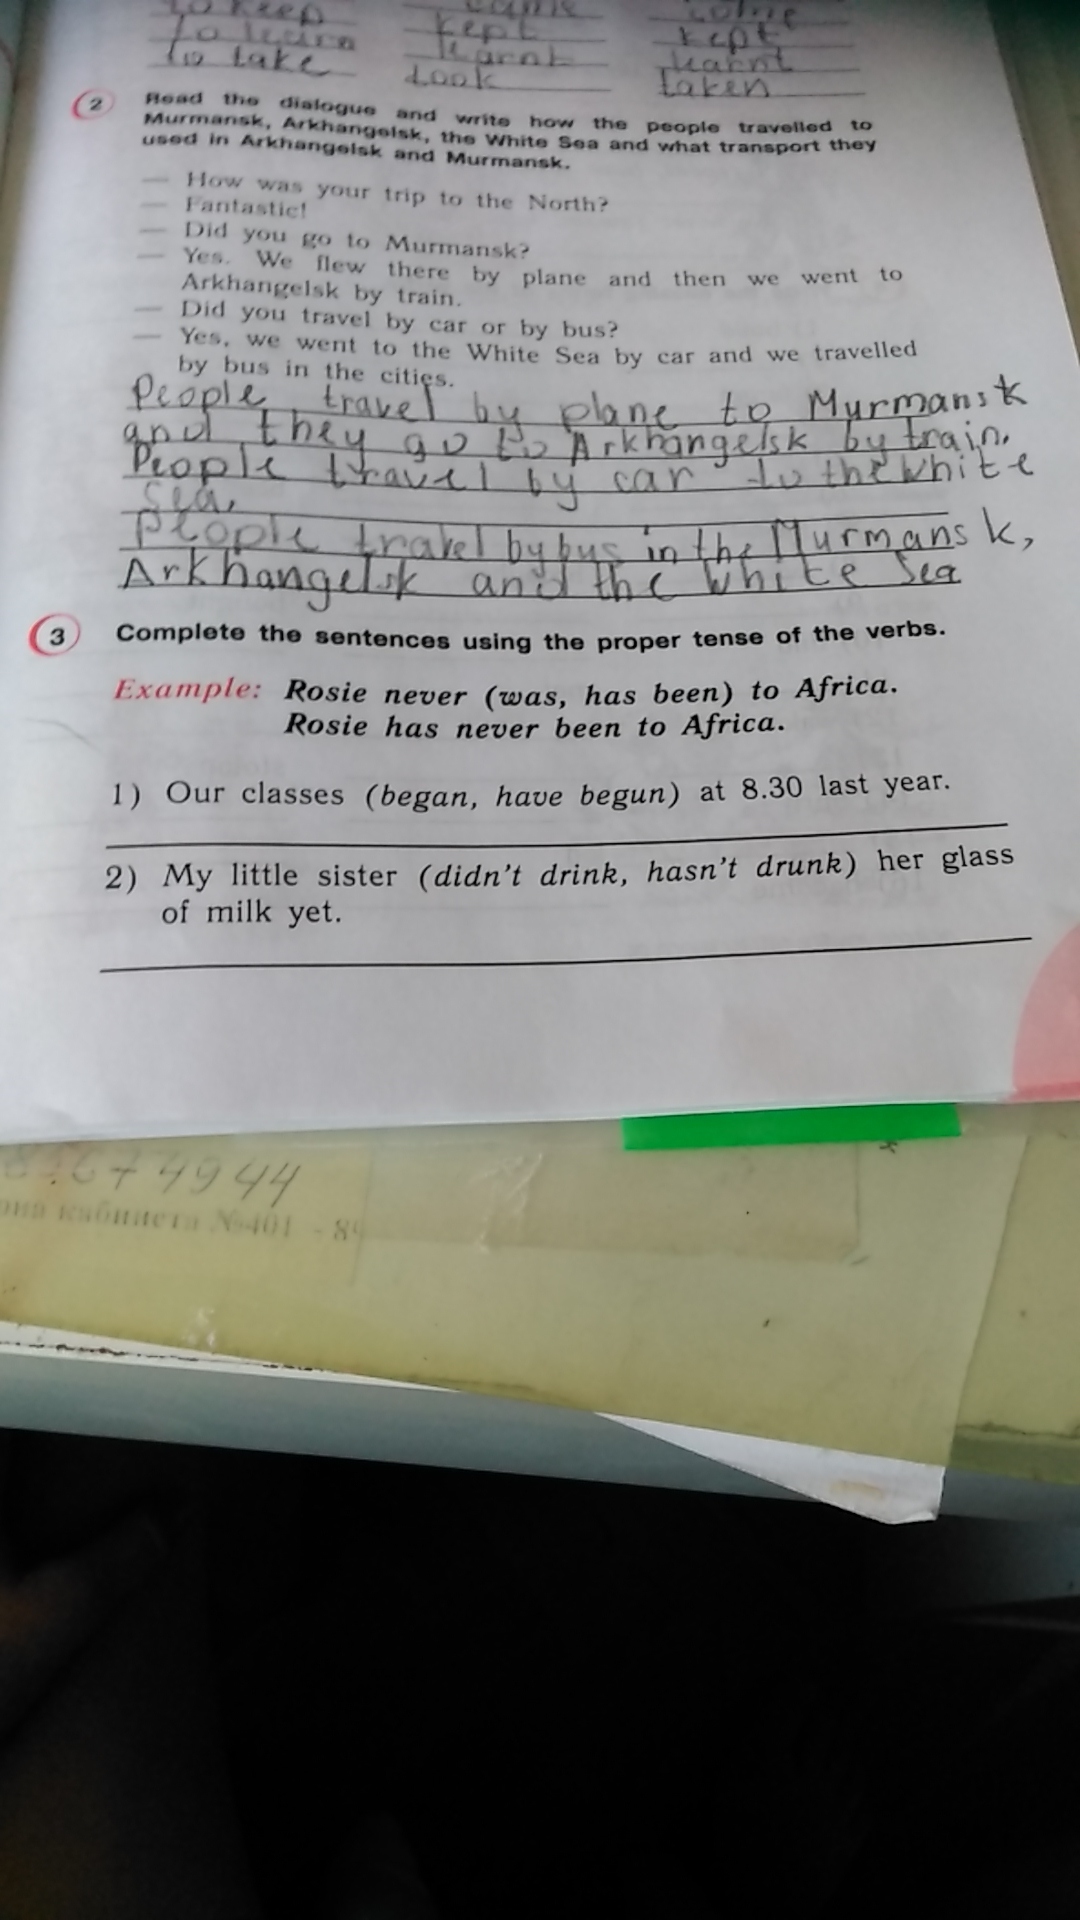 to keep came come
to learn kept kept
to take learnt learnt
took taken
2 Read the dialogue and write how the people travelled to
Murmansk, Arkhangelsk, the White Sea and what transport they
used in Arkhangelsk and Murmansk.
— How was your trip to the North?
— Fantastic!
— Did you go to Murmansk?
— Yes. We flew there by plane and then we went to
Arkhangelsk by train.
— Did you travel by car or by bus?
— Yes, we went to the White Sea by car and we travelled
by bus in the cities.
People travel by plane to Murmansk
and they go to Arkhangelsk by train.
People travel by car to the white
Sea.
People travel by bus in the Murmansk,
Arkhangelsk and the white Sea
3 Complete the sentences using the proper tense of the verbs.
Example: Rosie never (was, has been) to Africa.
Rosie has never been to Africa.
1) Our classes (began, have begun) at 8.30 last year.
2) My little sister (didn't drink, hasn't drunk) her glass
of milk yet.
4944
кабинета №401 - 8